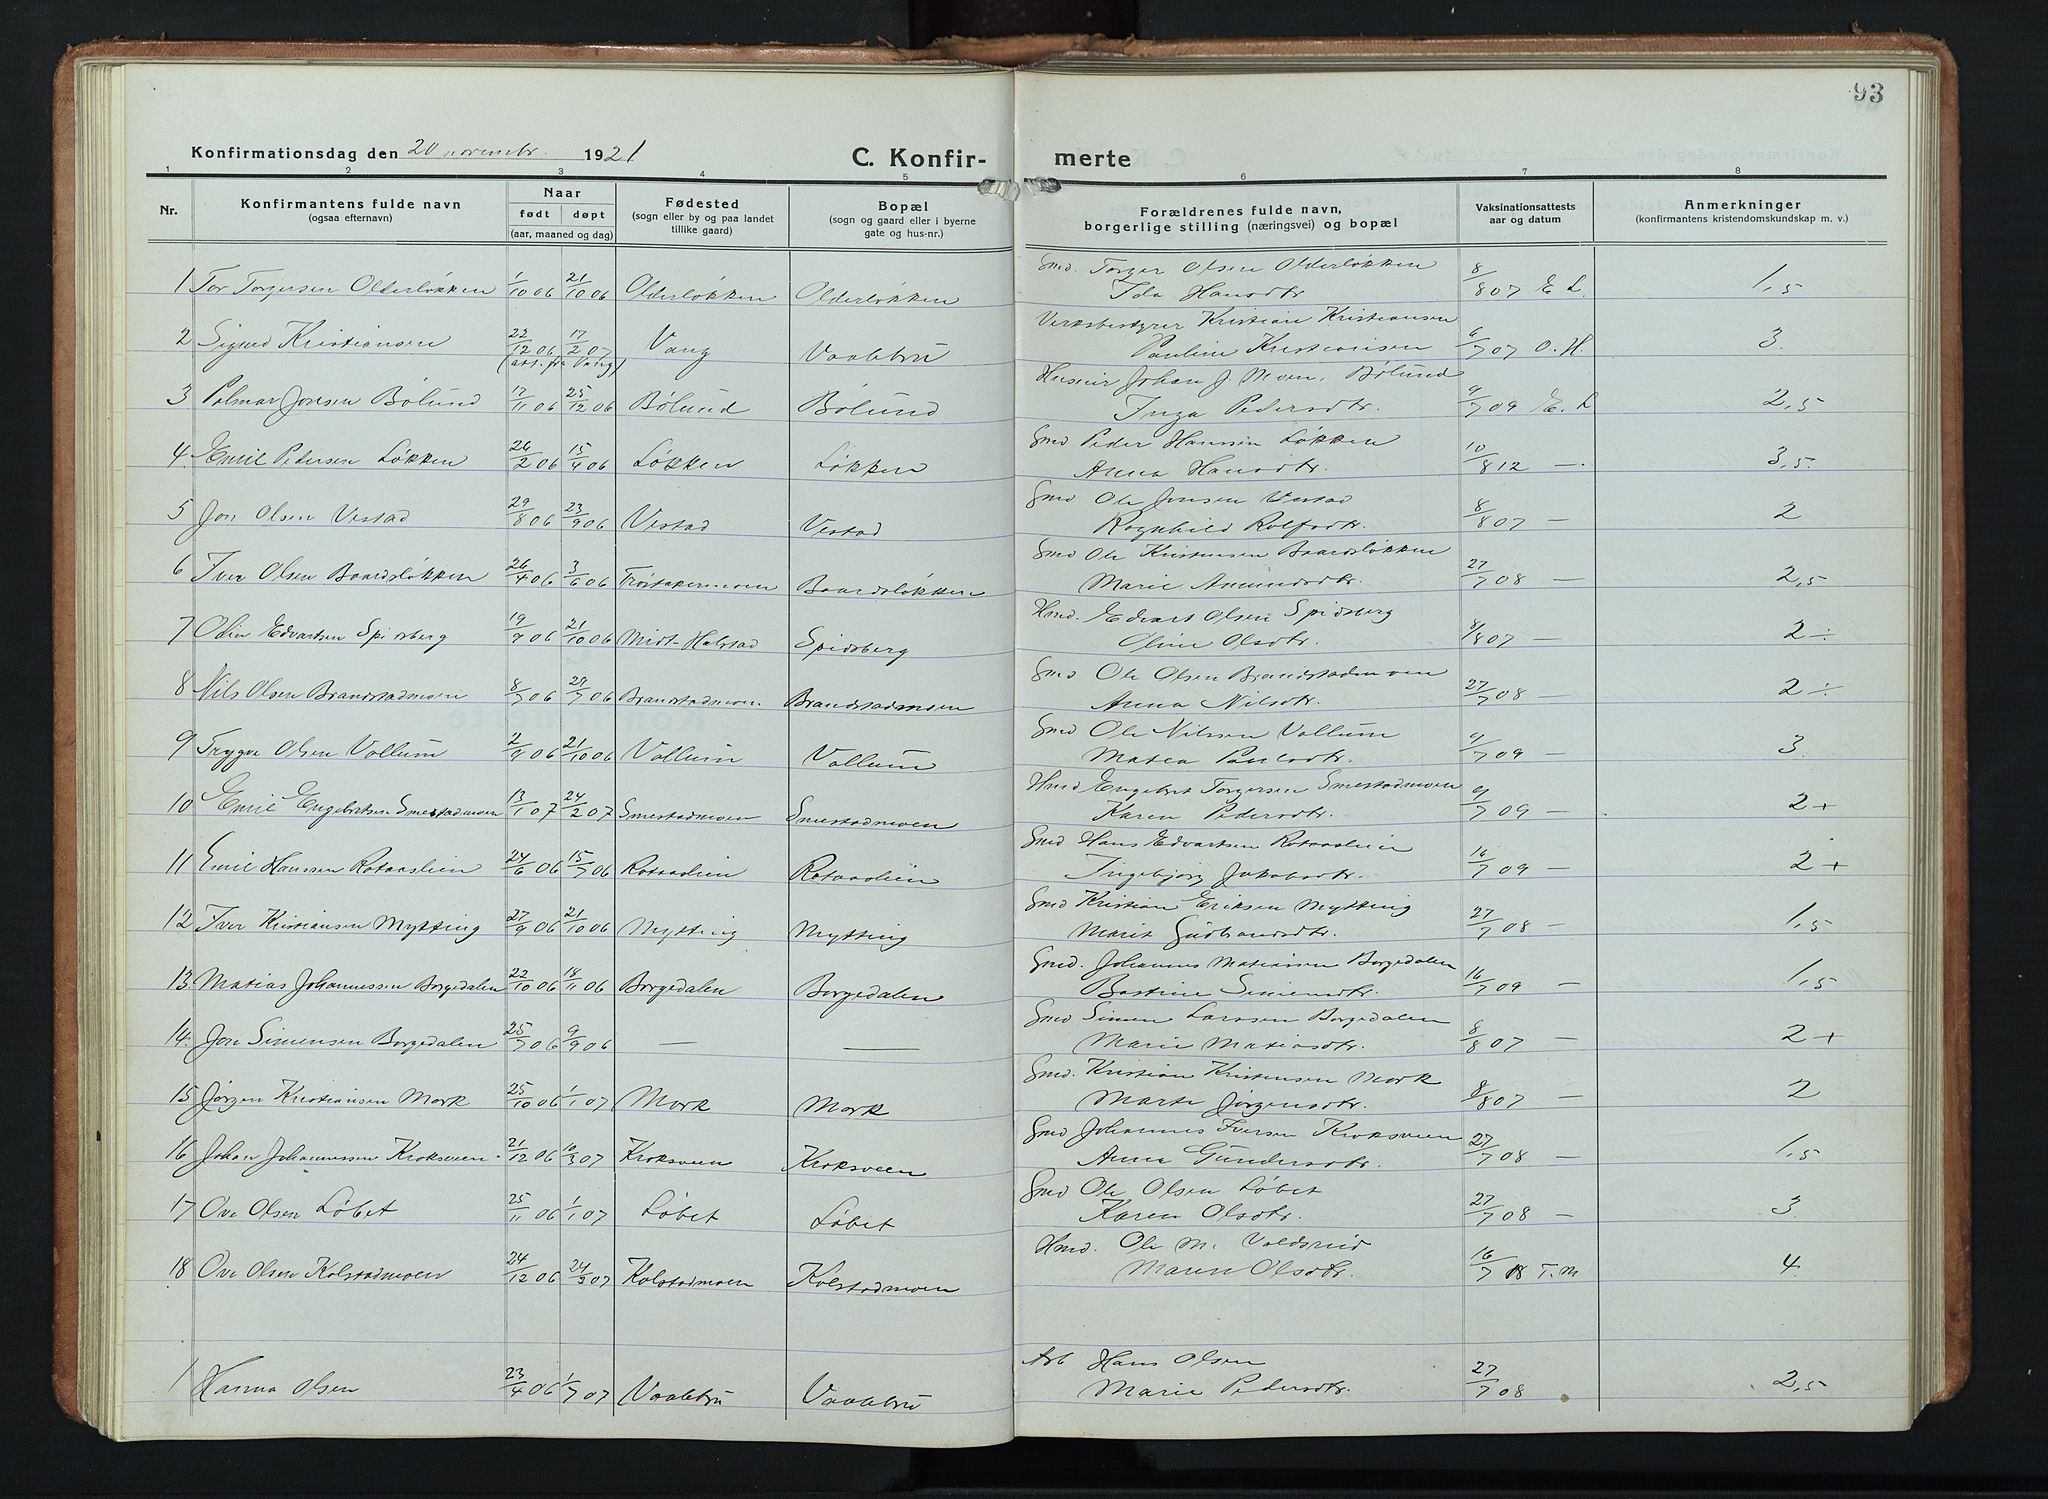 93
Konfirmationsdag den 20 novembr. 1921
C. Konfir- merte
1 2 3 4 5 6 7 8
Nr. Konfirmantens fulde navn (ogsaa efternavn) Naar født døpt (aar, maaned og dag) Fødested (sogn eller by og paa landet tillike gaard) Bopæl (sogn og gaard eller i byerne gate og hus-nr.) Forældrenes fulde navn, borgerlige stilling (næringsvei) og bopæl Vaksinationsattests aar og datum Anmerkninger (konfirmantens kristendomskundskap m. v.)
Gmd. Torger Olsen Olderløkken
1 Tor Torgersen Olderløkken 1/10 06 21/10 06 Olderløkken Olderløkken Ida Hansdtr 8/8 07 E L. 1,5
Kristian Kristiansen
2 Sigurd Kristiansen 22/12 06 17/2 07 Vang Vaalebru Pauline Kristiansen 6/7 07 O. H. 3.
(att. fra Vang)
Johan J. Moen, Bølund
3 Palmar Jonsen Bølund 17/11 06 25/12 06 Bølund Bølund Inga Pedersdtr. 9/7 09 E. L 2,5
Gmd Peder Hanssen Løkken
4. Emil Pedersen Løkken 26/2 06 15/4 06 Løkken Løkken Anna Hansdtr. 10/8 12 — 3,5.
Gmd Ole Jonsen Vestad
5 Jon Olsen Vestad 29/8 06 23/9 06 Vestad Vestad Ragnhild Rolfsdtr. 8/8 07 — 2
Gmd Ole Kristensen Baardsløkken
6 Iver Olsen Baardsløkken 26/4 06 3/6 06 Baardsløkken Marie Amundsdtr. 27/7 08 — 2,5
Hmd. Edvart Olsen Spidsberg
7 Odin Edvartsen Spidsberg 19/9 06 21/10 06 Midt-Halstad Spidsberg Oline Olsdtr. 8/8 07 — 2 ÷
Gmd Ole Olsen Brandstadmoen
8 Nils Olsen Brandstadmoen 8/7 06 29/7 06 Brandstadmoen Brandstadmoen Anna Nilsdtr. 27/7 08 — 2 ÷
Gmd Ole Nilssen Vollum
9 Trygve Olsen Vollum 2/9 06 21/10 06 Vollum Vollum Matea Paulsdtr. 9/7 09 — 3
Hmd Engebret Torgersen Smestadmoen
10 Emil Engebretsen Smestadmoen 13/1 07 24/2 07 Smestadmoen Smestadmoen Karen Pedersdtr. 9/7 09 — 2 +
Gmd Hans Edvartsen Rotaaslien
11 Emil Hanssen Rotaaslien 24/6 06 15/7 06 Rotaaslien Rotaaslien Ingebjørg Jakobsdtr. 16/7 09 — 2 +
Gmd Kristian Eriksen Mytting
12 Iver Kristiansen Mytting 27/9 06 21/10 06 Mytting Mytting Marit Gudbrandsdtr. 27/7 08 — 1,5
Gmd. Johannes Matiassen Borgedalen
13. Matias Johannessen Borgedalen 22/10 06 18/11 06 Borgedalen Borgedalen Bastine Simensdtr. 16/7 09 — 1,5
Gmd Simen Larssen Borgedalen
14. Jon Simensen Borgedalen 25/7 06 9/9 06 — — Marie Matiasdtr. 8/8 07 — 2 +
Gmd. Kristian Kristensen Mork
15 Jørgen Kristiansen Mork 25/10 06 1/1 07 Mork Mork Marte Jørgensdtr. 8/8 07 — 2
Gmd Johannes Iversen Kroksveen
16 Johan Johannessen Kroksveen 21/12 06 10/3 07 Kroksveen Kroksveen Anne Gundersdtr. 27/7 08 — 1,5
Gmd Ole Olsen Løbet
17 Ove Olsen Løbet 25/11 06 1/1 07 Løbet Løbet Karen Olsdtr. 27/7 08 — 3.
Hmd. Ole M.
18 Ove Olsen Kolstadmoen 24/12 06 24/2 07 Kolstadmoen Kolstadmoen Maren Olsdtr. 16/7 18 T. M 4.
Arb Hans Olsen
1 Hanna Olsen 23/4 06 1/7 07 Vaalebru Vaalebru Marie Pedersdtr. 27/7 08 2,5